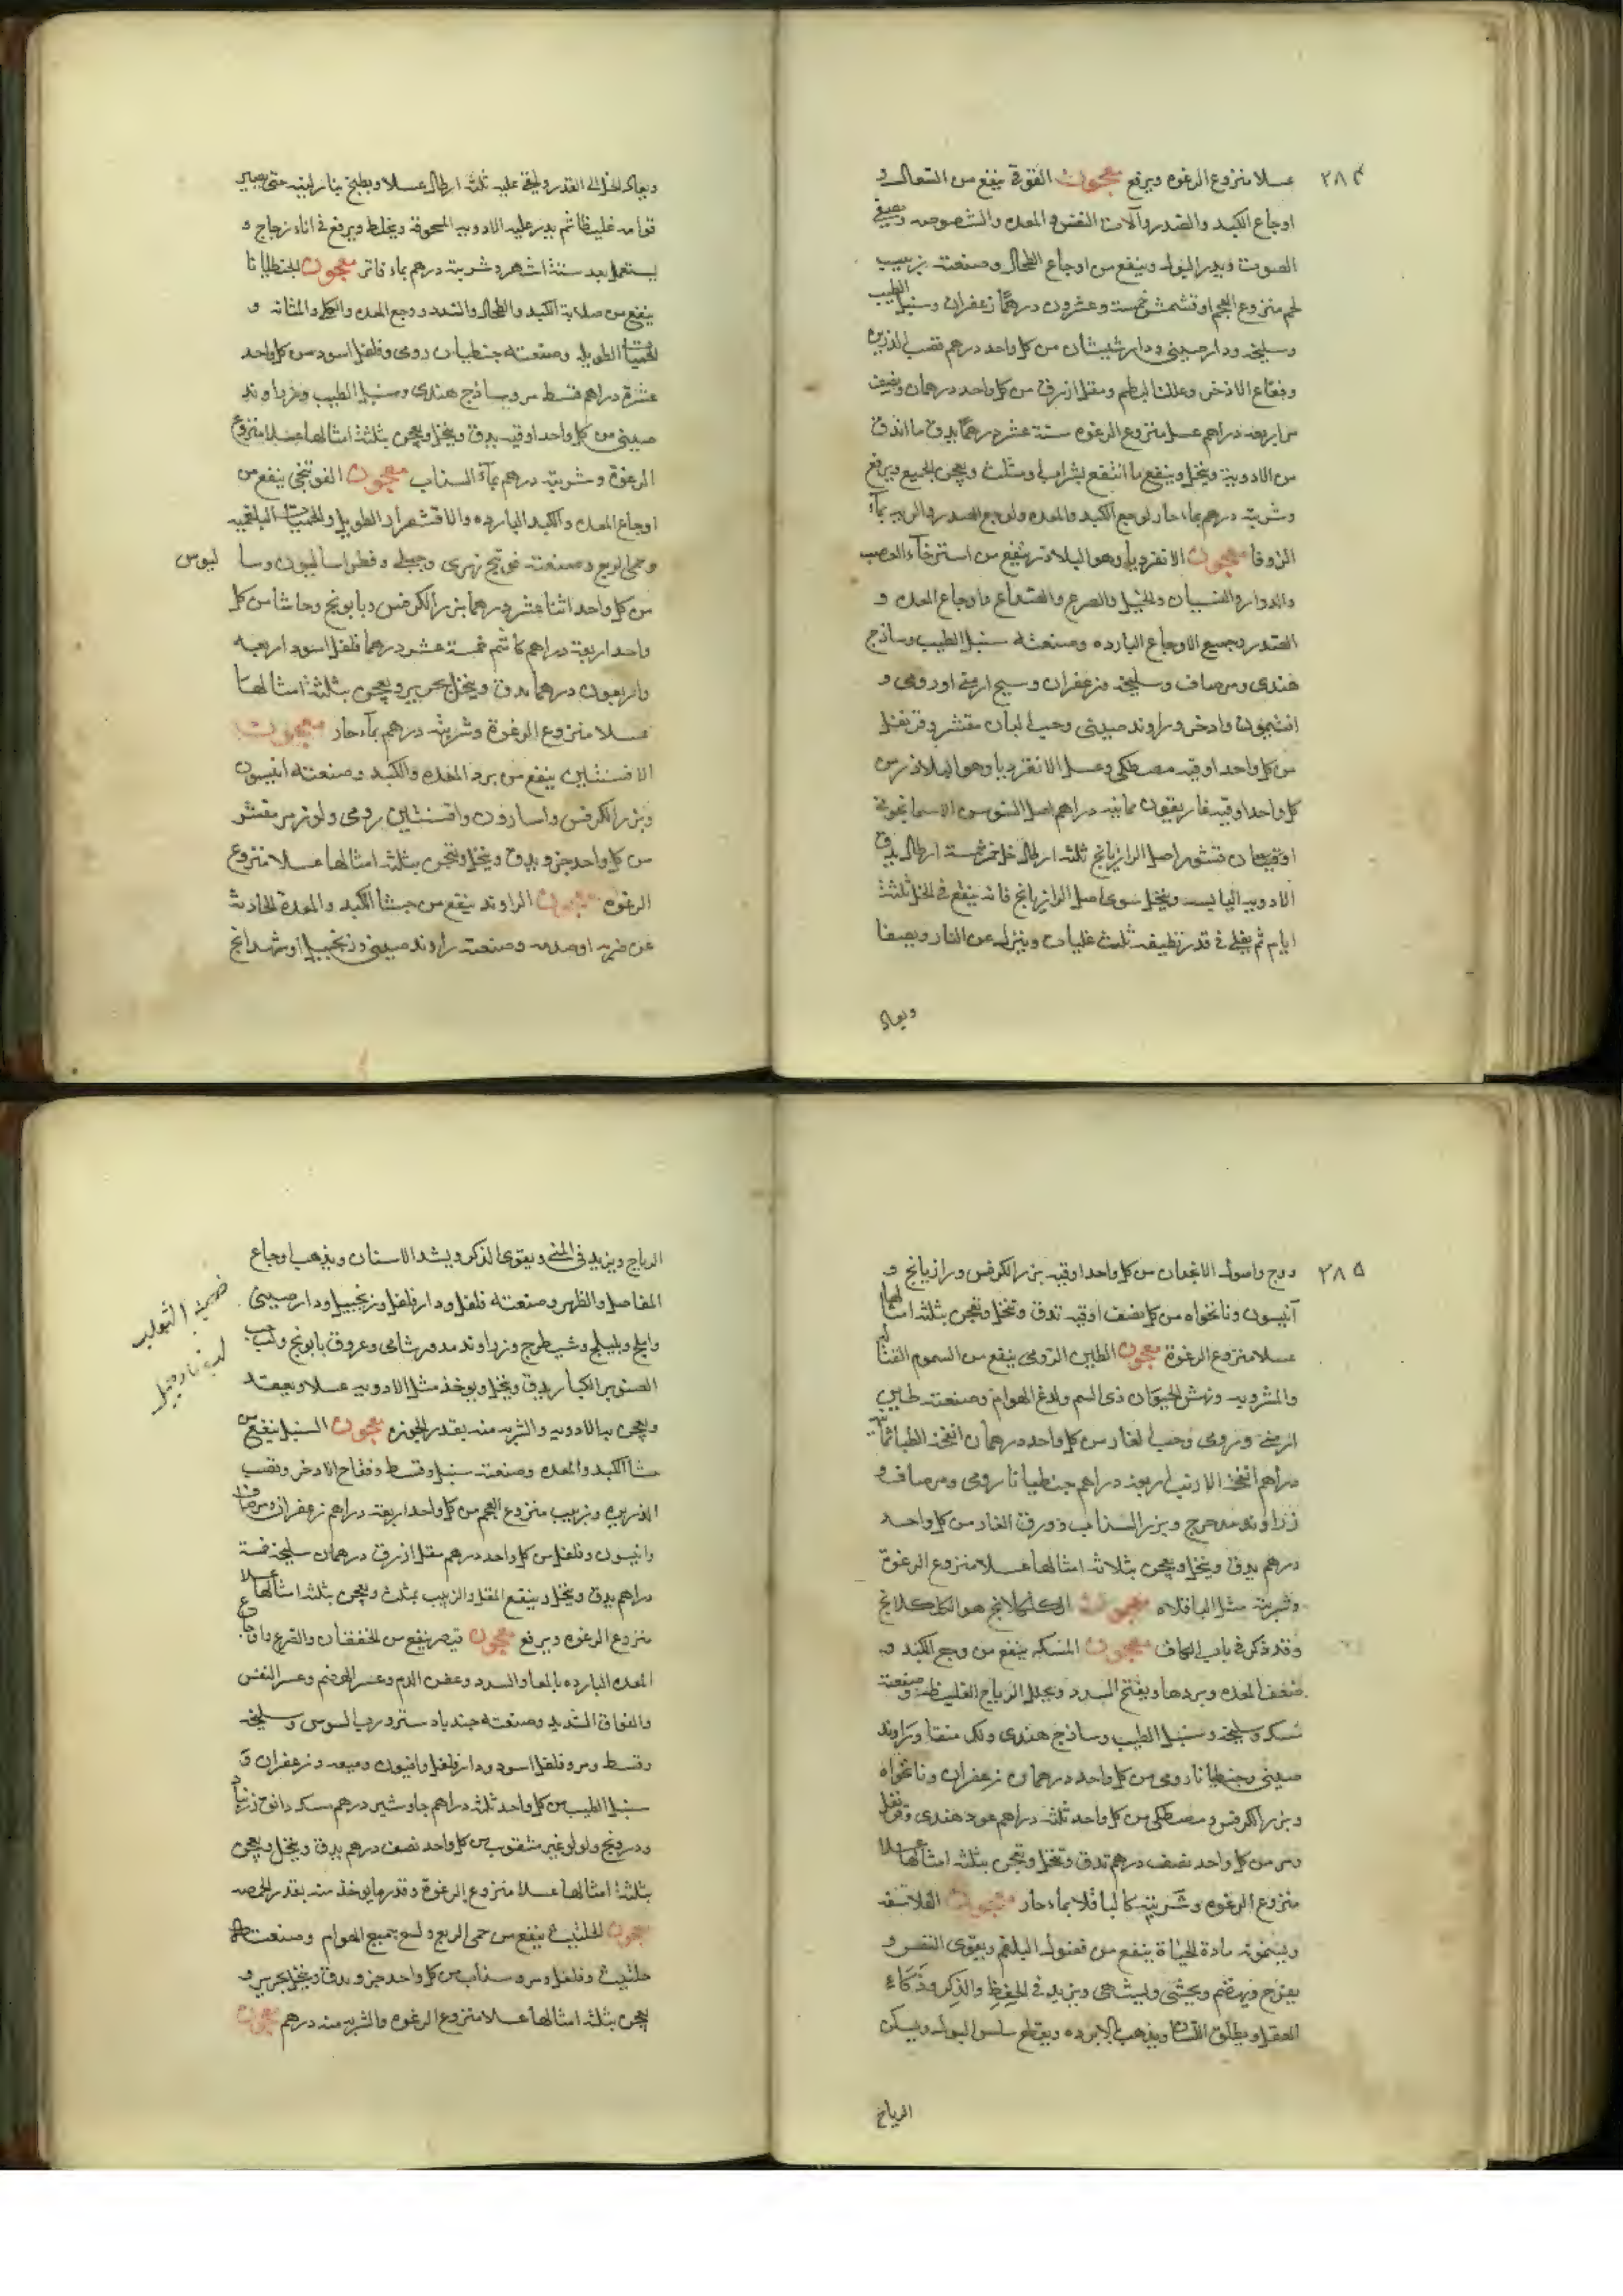 ٢٨٤
عسلا منزوع الرغوه ويرفع معجون الفوقى ينفع من السعال و
اوجاع الكبد والصدر وآلات النفس والمعده والشوصه ويصفى
الصوت ويدر البول وينفع من اوجاع الطحال وصنعته زبيب
لحم منزوع العجم او قشمش خمسة وعشرون درهمًا زعفران وسنبل الطيب
وسليخه ودارصينى ودارشيشان من كل واحد درهم قصب الذريره
وفقاع الاذخر وعلك البطم ومقل ازرق من كل واحد درهمان ونصف
مر اربعه دراهم عسل منزوع الرغوه ستة عشر درهمًا يدق ما اندق
من الادوية وينخل وينقع ما انتقع بشراب ومثلث ويعجن الجميع ويرفع
وشربته درهم بماء حار لوجع الكبد والمعده ولوجع الصدر والريه بمآء
الزوفا معجون الانقرديا وهو البلادر ينفع من استرخآء العصب
والدوار والنسيان والخبل والصرع والصداع واوجاع المعده و
الصدر وجميع الاوجاع البارده وصنعته سنبل الطيب وساذج
هندى ومر صاف وسليخه وزعفران وسيح ارمنى او رومى و
افتيمون واذخر وراوند صينى وحب لبان مقشر وقرنفل
من كل واحد اوقيه مصطكى وعسل الانقرديا وهو البلادر من
كل واحد اوقيه غاريقون ثمانيه دراهم اصل السوسن الاسمانجونى
اوقيتان قشور اصل الرازيانج ثلثه ارطال خل خمر خمسة ارطال يدق
الادويه اليابسه وينخل سوى اصل الرازيانج فانه ينقع فى الخل ثلثة
ايام ثم يغلى فى قدر نظيفه ثلث غليات وينزل عن النار ويصفا
ويعاد
ويعاد الخل الى القدر ويلقى عليه ثلثه ارطال عسلا ويطبخ بنار لينه حتى يصير
قوامه غليظا ثم يدر عليه الادويه المسحوقه ويخلط ويرفع فى اناء زجاج و
يستعمل بعد ستة اشهر وشربته درهم بماء فاتر معجون الجنطيانا
ينفع من صلابة الكبد والطحال والسدد ووجع المعده والكلى والمثانه و
الحميات الطويله وصنعته جنطيان رومى وفلفل اسود من كل واحد
عشرة دراهم قسط مر وساذج هندى وسنبل الطيب وراوند
صينى من كل واحد اوقيه يدق وينخل ويعجن بثلثة امثالها عسلا منزوع
الرغوة وشربته درهم بمآء السداب معجون الفوتنجى ينفع من
اوجاع المعده والكبد البارده والاقشعرار الطويل والحميات البلغميه
وحمى الربع وصنعته فوتنج نهرى وجبلى وفطراساليون وسا ليوس
من كل واحد اثنا عشر درهما بزر الكرفس وبابونج وحاشا من كل
واحد اربعة دراهم كاشم خمسة عشر درهما فلفل اسود اربعه
واربعون درهما يدق وينخل بحرير ويعجن بثلثة امثالها
عسلا منزوع الرغوة وشربته درهم بمآء حار معجون
الافسنتين ينفع من برد المعده والكبد وصنعته انيسون
وبزر الكرفس واسارون وافسنتين رومى ولوز مر مقشر
من كل واحد جزو يدق وينخل ويعجن بثلثه امثالها عسلا منزوع
الرغوه معجون الراوند ينفع من جسا الكبد والمعدة الحادثه
عن ضربه او صدمه وصنعته راوند صينى وزنجبيل او شهدانج
٢٨٥
ووج واصول الانجدان من كل واحد اوقيه بزر الكرفس ورازيانج و
آنيسون ونانخواه من كل نصف اوقيه تدق وتنخل وتعجن بثلثه امثالها
عسلا منزوع الرغوة معجون الطين الرومى ينفع من السموم القتاله
والمشروبه ونهش الحيوان ذى السم ولدغ الهوام وصنعته طين
ارمنى ورومى وحب الغار من كل واحد درهمان انفحة الظبا ثمانية
دراهم انفحة الارنب اربعه دراهم جنطيانا رومى ومر صاف و
زراوند مدحرج وبزر السذاب وورق الغار من كل واحد
درهم يدق وينخل ويعجن بثلاثه امثالها عسلا منزوع الرغوة
وشربته مثل الباقلاه معجون الكلكلانج هو الكلكلانج
وقد ذكر فى باب الكاف معجون المسكه ينفع من وجع الكبد و
ضعف المعده وبردها ويفتح السدد ويحلل الرياح الغليظه وصنعته
سكه وسليخه وسنبل الطيب وساذج هندى ولك منقا وراوند
صينى وجنطيانا رومى من كل واحد درهمان زعفران ونانخواه
وبزر الكرفس ومصطكى من كل واحد ثلثه دراهم عود هندى وقرنفل
ومر من كل واحد نصف درهم تدق وتنخل وتعجن بثلثه امثالها عسلا
منزوع الرغوه وشربته كالباقلا بماء حار معجون الفلاسفه
ويسمونه مادة الحياة ينفع من فضول البلغم ويقوى النفس و
يفرح ويهضم ويحشى ويشهى ويزيد فى الحِفظِ والذِكر وذُكاءِ
العقل ويطلق اللسان ويذهب بالابرده ويقطع سلس البول ويسكن
الرياح
الرياح ويزيد فى المنى ويقوى الذكر ويشد الاسنان ويذهب اوجاع
المفاصل والظهر وصنعته فلفل ودارفلفل وزنجبيل ودارصينى
واملج وبليلج وشيطرج وزراوند مدور شامى وعروق بابونج ولب حب
الصنوبر الكبار يدق وينخل ويوخذ مثل الادويه عسلا ويعقد
ويعجن به الادويه والشربه منه بقدر الجوزه معجون السنبل ينفع من
جسا الكبد والمعده وصنعته سنبل وقسط وفقاح الاذخر وقصب
الذريره وزبيب منزوع العجم من كل واحد اربعة دراهم زعفران ومر صاف
وانيسون وفلفل من كل واحد درهم مقل ازرق درهمان سليخه خمسة
دراهم يدق وينخل وينقع المقل والزبيب بمثلث ويعجن بثلثه امثالها عسلا
منزوع الرغوه ويرفع معجون قيصر ينفع من الخفقان والصرع واوجاع
المعده البارده بالمعا والسدد وعفن الدم وعسر الهضم وعسر النفس
والفواق الشديد وصنعته جندبادستر ورب السوس وسليخه
وقسط ومر وفلفل اسود ودارفلفل وافيون وميعه وزعفران و
سنبل الطيب من كل واحد ثلثه دراهم جاوشير درهم سكه دانق زرنباد
ودرونج ولولو غير مثقوب من كل واحد نصف درهم يدق وينخل ويعجن
بثلثة امثالها عسلا منزوع الرغوة وقدر ما يوخذ منه بقدر الحمصه
معجون الحلتيت ينفع من حمى الربع ولسع جميع الهوام وصنعته
حلتيت وفلفل ومر وسذاب من كل واحد جزو يدق وينخل بحرير و
يعجن بثلثه امثالها عسلا منزوع الرغوه والشربه منه درهم معجون
خصية الثعلب